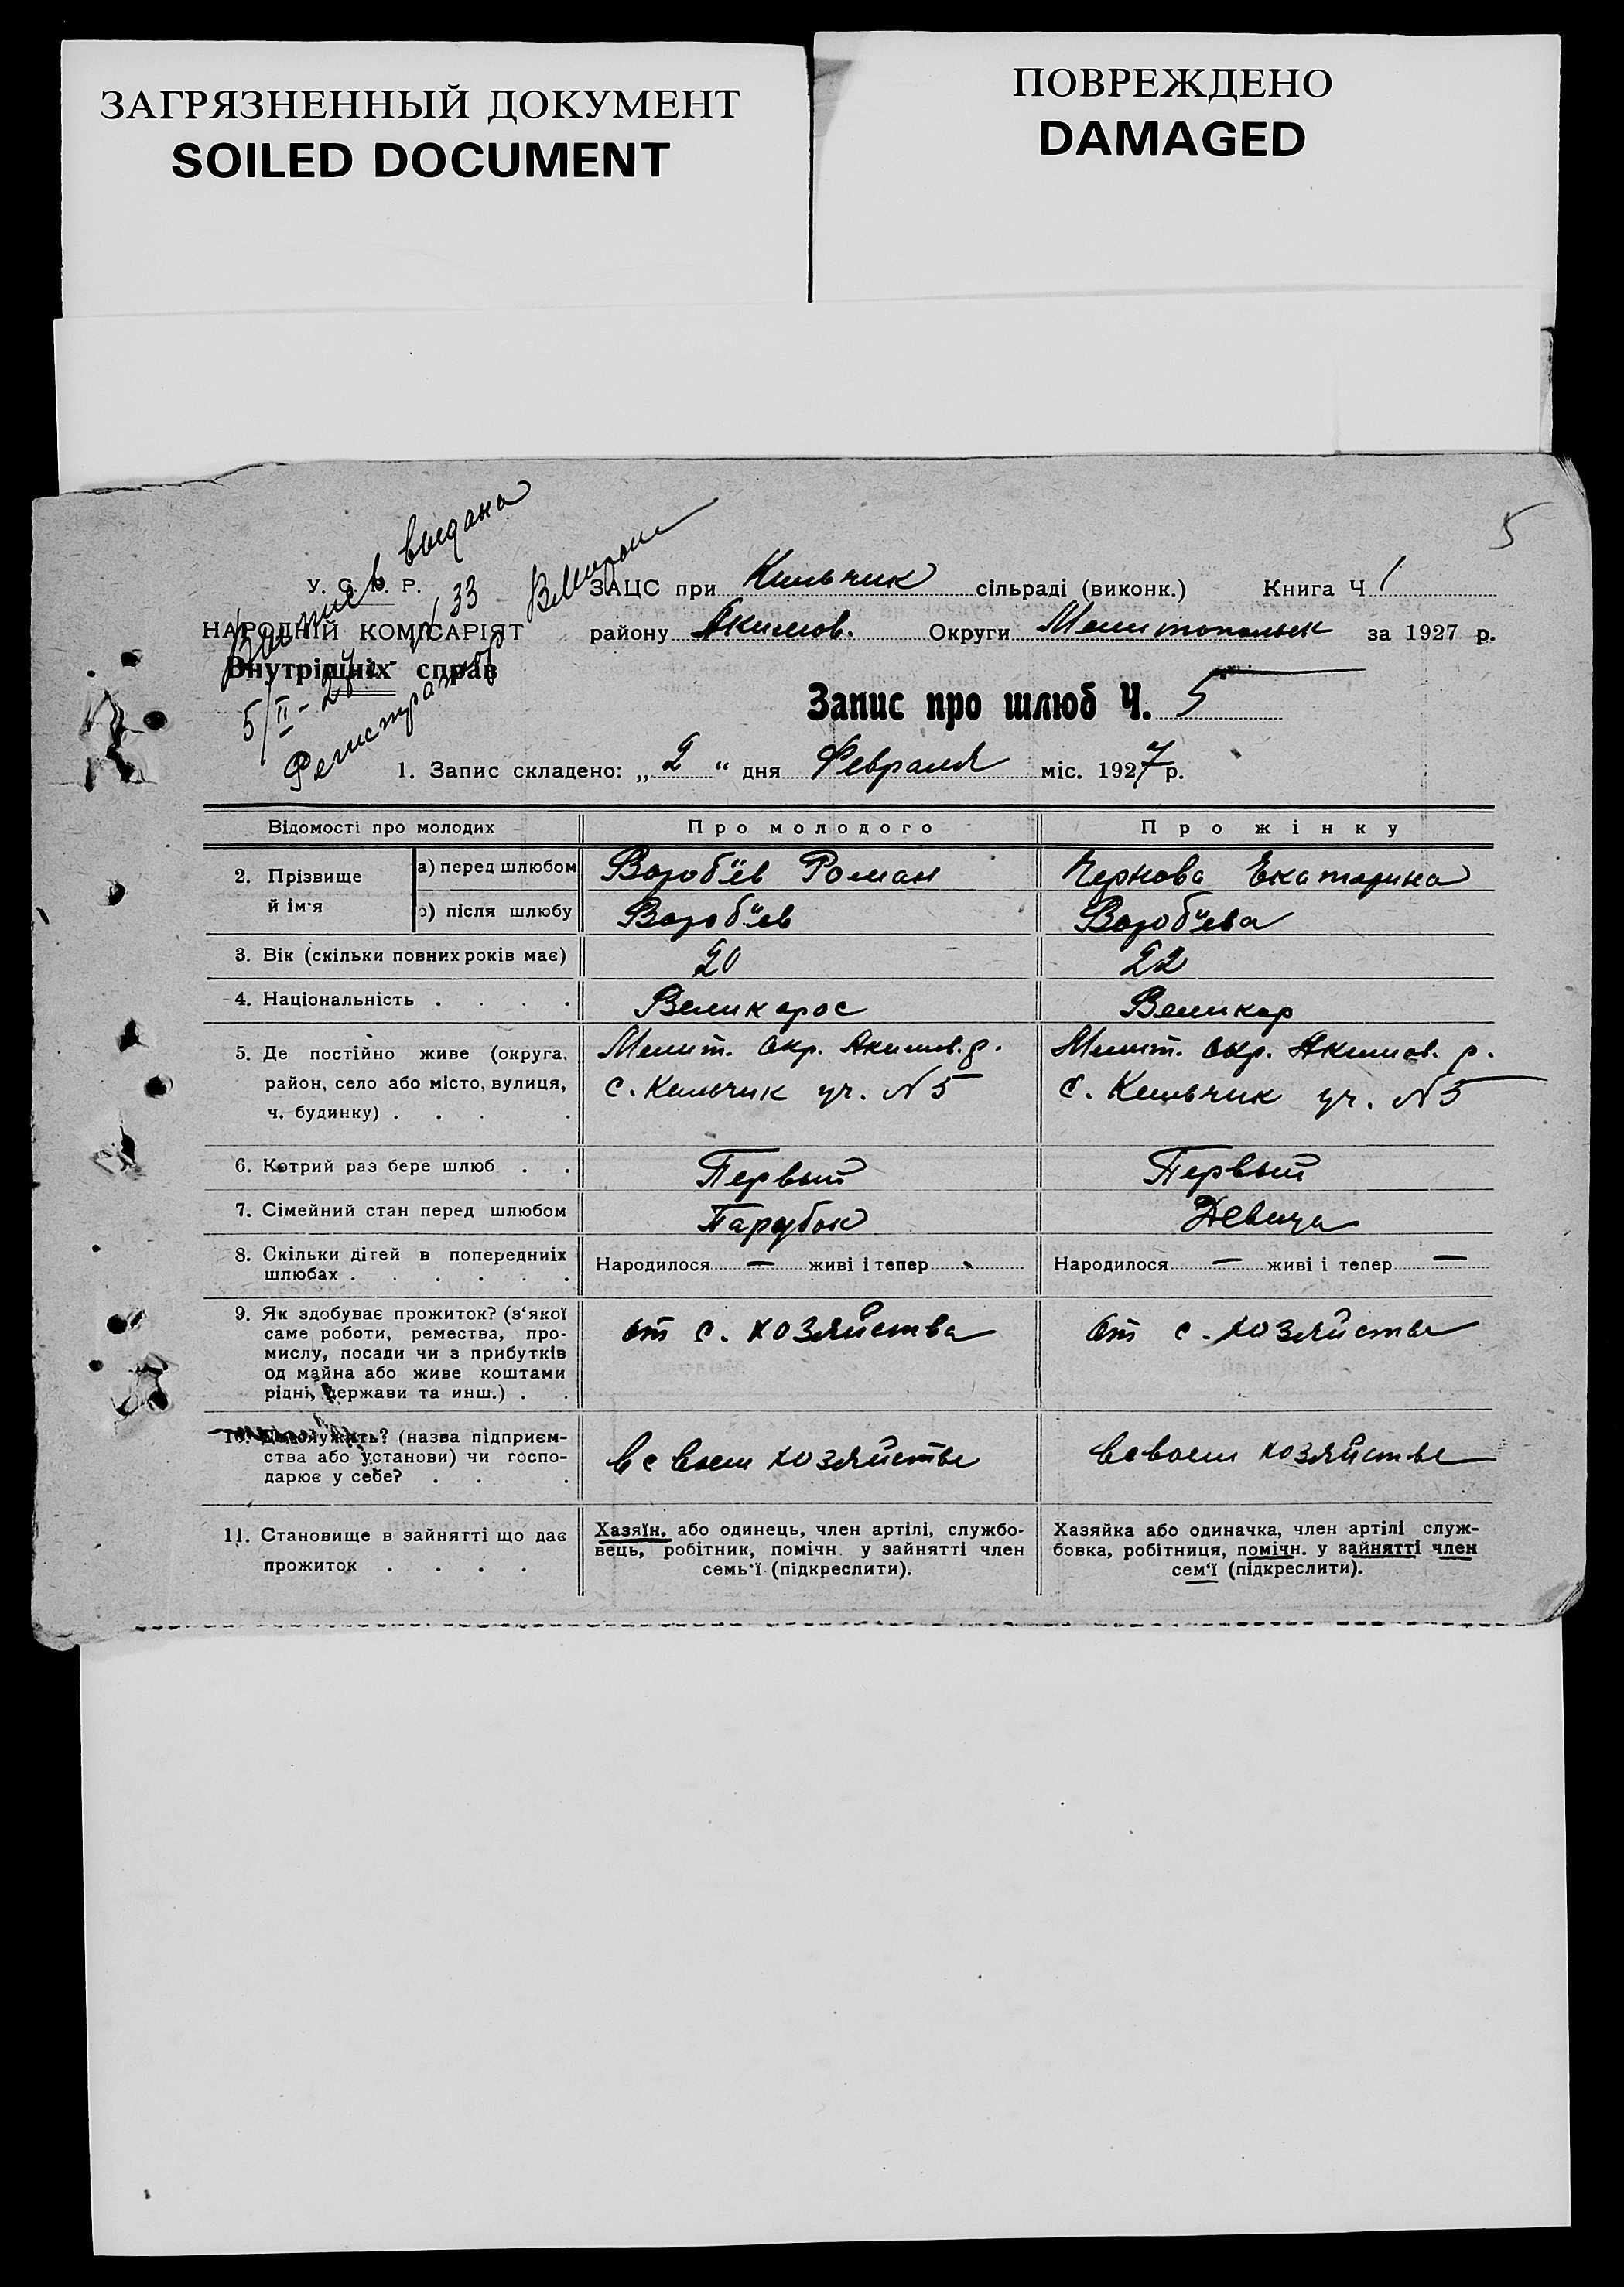 ЗАГРЯЗНЕННЫЙ ДОКУМЕНТ
SOILED DOCUMENT
ПОВРЕЖДЕНО
DAMAGED
5
Выпись выдана
5/II-27 г. № 33
Регистратор
У. С. Р. Р.
НАРОДНІЙ КОМІСАРІЯТ
Внутрішніх справ
ЗАЦС при Кильчик сільраді (виконк.) Книга Ч 1
району Акимов. Округи Мелитопольск за 1927 р.
Запис про шлюб Ч. 5
1. Запис складено: „ 2 “ дня Февраля міс. 1927 р.
Відомості про молодих Про молодого Про жінку
2. Прізвище й ім'я а) перед шлюбом Вороб'ев Роман Чернова Екатарина
б) після шлюбу Вороб'ев Вороб'ева
3. Вік (скільки повних років має) 20 22
4. Національність . . . . Великорос Великор
5. Де постійно живе (округа, Мелит. Окр. Акимов. р. Мелит. Окр. Акимов. р.
район, село або місто, вулиця, с. Кильчик уч. N 5 с. Кильчик уч. N 5
ч. будинку) . . . .
6. Котрий раз бере шлюб . . Первый Первый
7. Сімейний стан перед шлюбом Парубок Девица
8. Скільки дітей в попередниіх Народилося — живі і тепер Народилося — живі і тепер —
шлюбах . . . . . .
9. Як здобуває прожиток? (з'якої от с. хозяйства от с. хозяйства
саме роботи, ремества, про-
мислу, посади чи з прибутків
од майна або живе коштами
рідні, держави та инш.) . .
10. (назва підприєм-
ства або установи) чи госпо- в своем хозяйстве в своем хозяйстве
дарює у себе? . . .
11. Становище в зайнятті що дає Хазяїн, або одинець, член артілі, службо- Хазяйка або одиначка, член артілі служ-
прожиток . . . . вець, робітник, помічн. у зайнятті член бовка, робітниця, помічн. у зайнятті член
семь'ї (підкреслити). сем'ї (підкреслити).